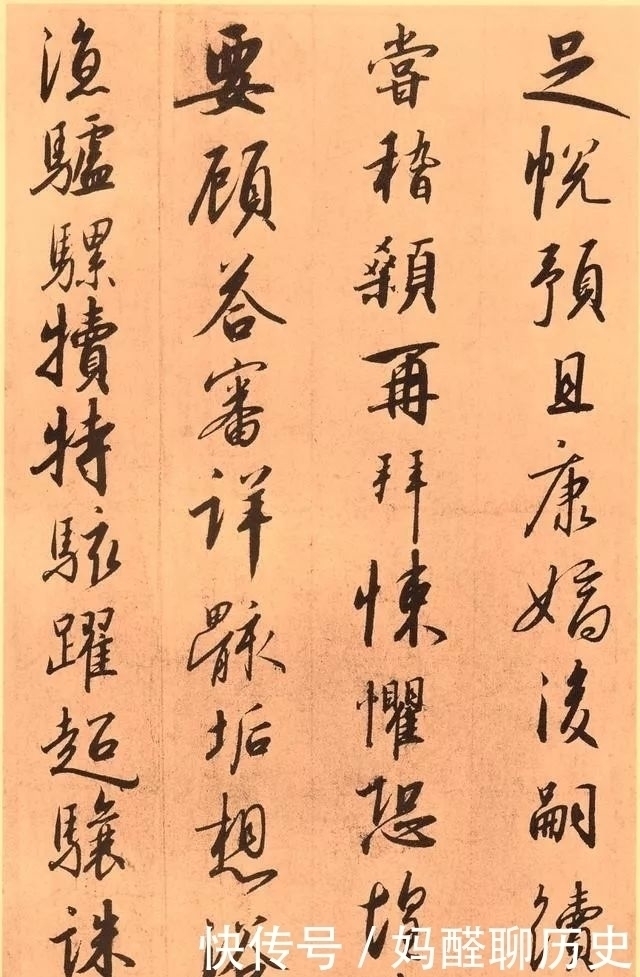 足悅預且康嫡後嗣續
嘗稽顙再拜悚懼恐惶
要顧答審詳骸垢想浴
涼驢騾犢特駭躍超驤誅
快传号 / 妈醛聊历史